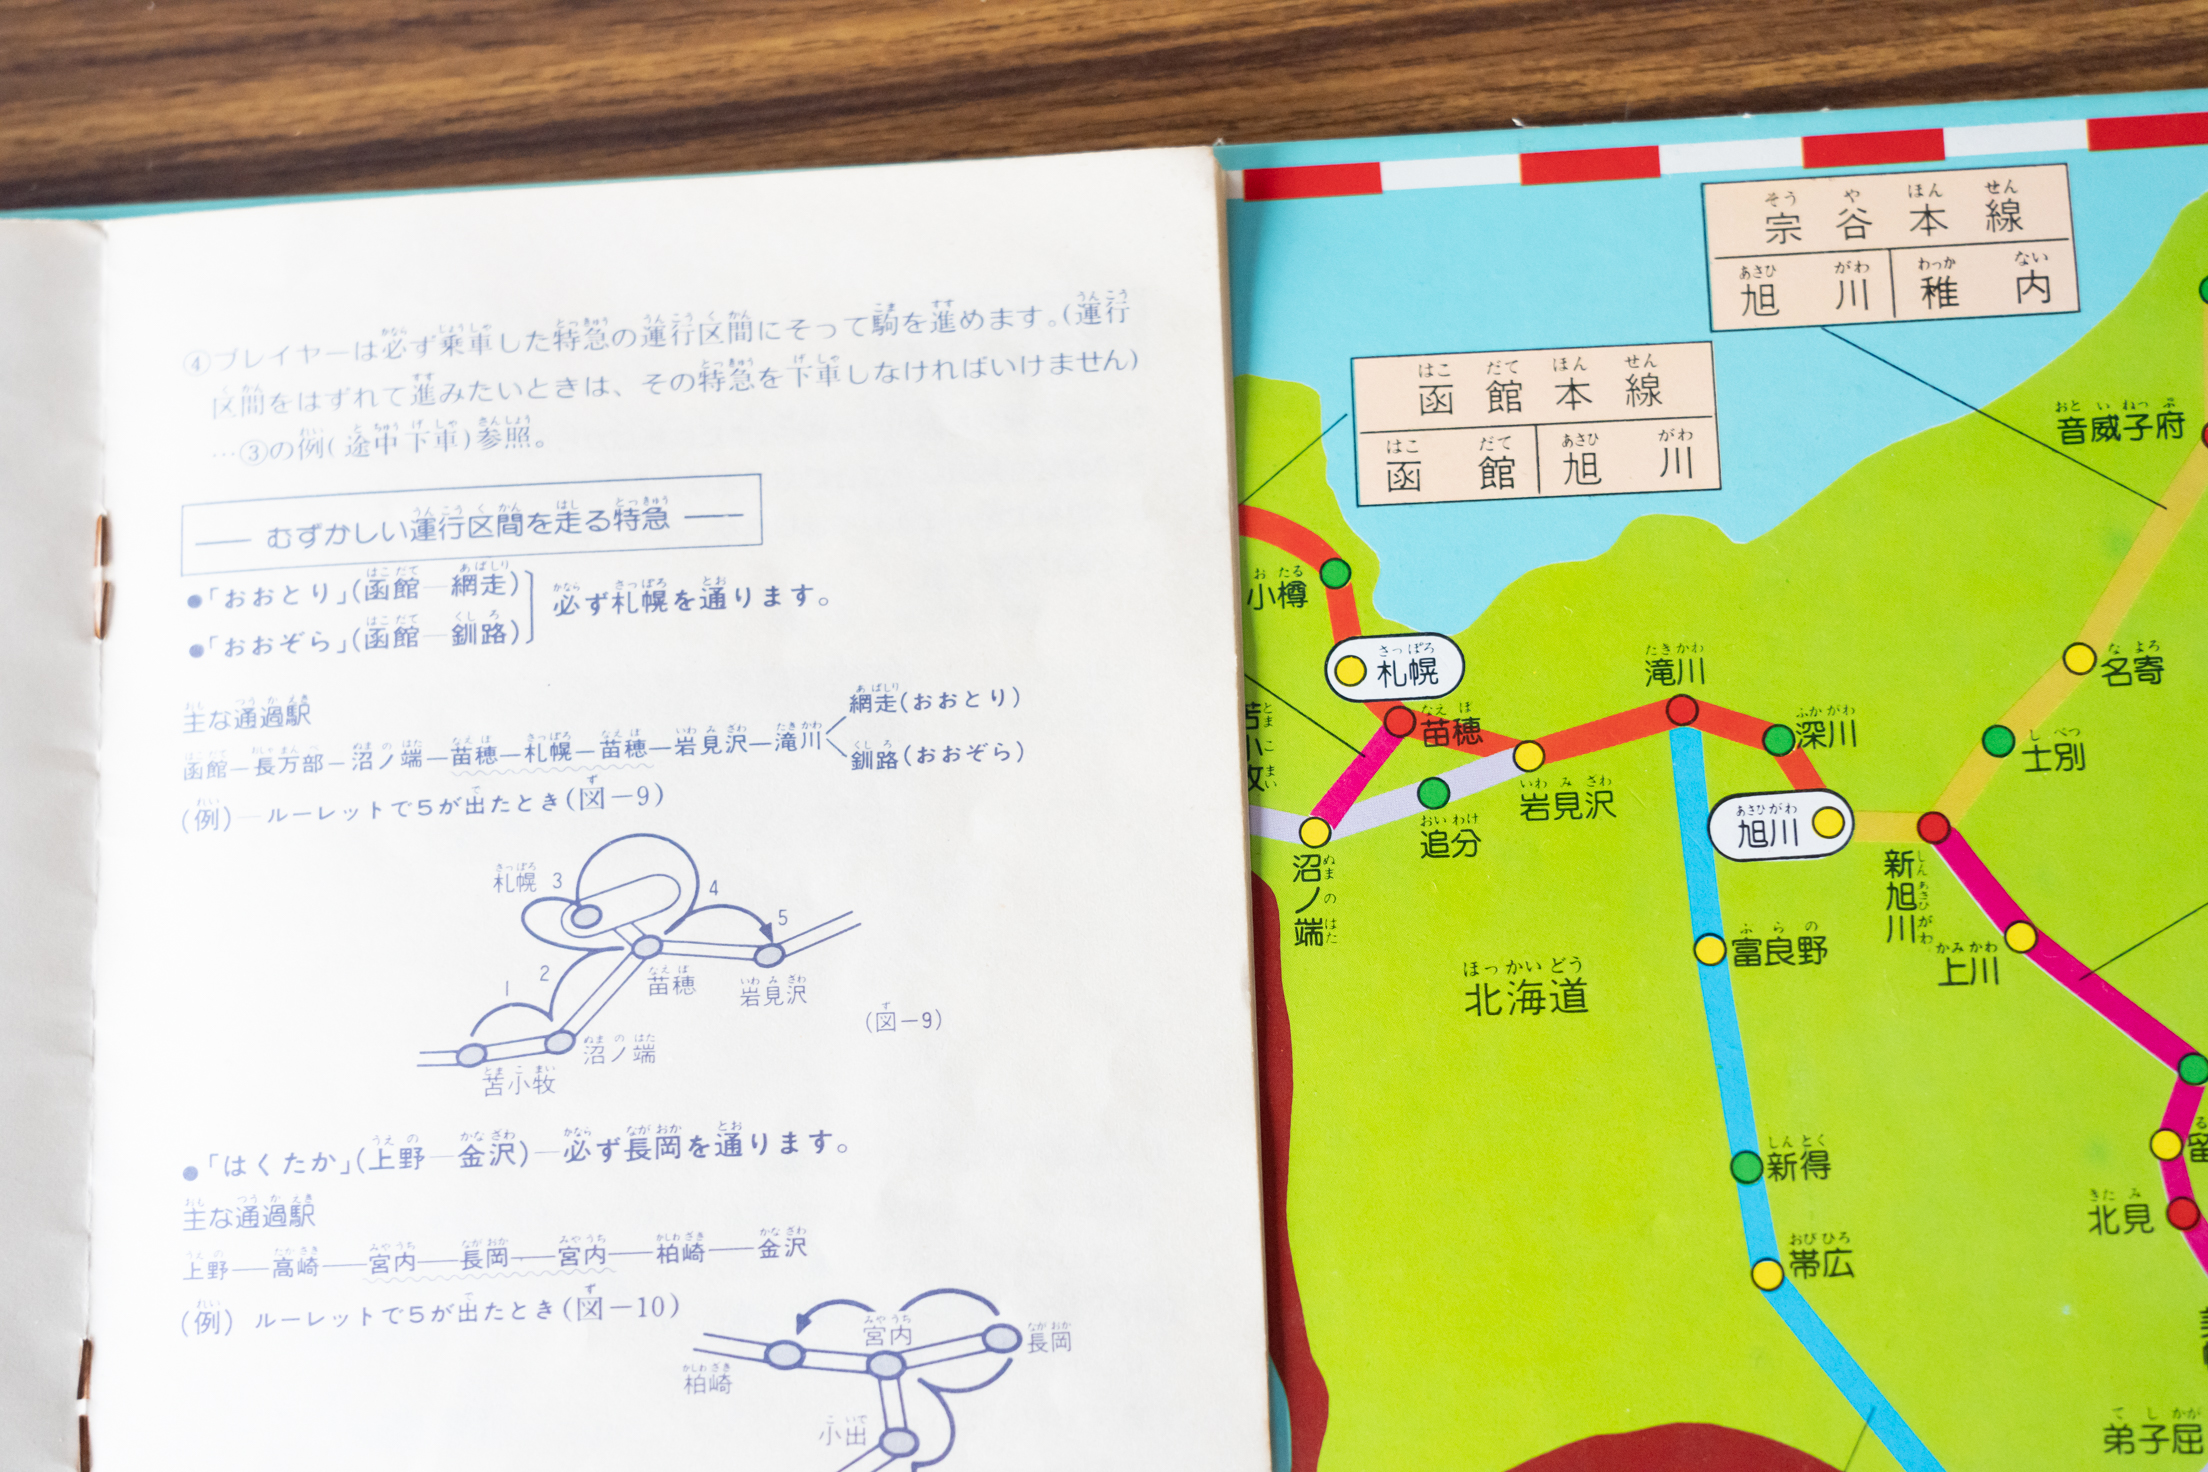 ④プレイヤーは必ず乗車した特急の運行区間にそって駒を進めます。(運行
区間をはずれて進みたいときは、その特急を下車しなければいけません)
…③の例(途中下車)参照。
むずかしい運行区間を走る特急
●「おおとり」(函館―網走)
●「おおぞら」(函館―釧路)
必ず札幌を通ります。
主な通過駅
函館―長万部―沼ノ端―苗穂―札幌―苗穂―岩見沢―滝川
網走(おおとり)
釧路(おおぞら)
(例)―ルーレットで5が出たとき(図-9)
札幌
3
4
5
2
1
苗穂
岩見沢
沼ノ端
苫小牧
(図-9)
●「はくたか」(上野―金沢)―必ず長岡を通ります。
主な通過駅
上野―高崎―宮内―長岡―宮内―柏崎―金沢
(例)ルーレットで5が出たとき(図-10)
宮内
長岡
柏崎
小出
宗谷本線
旭川
稚内
函館本線
函館
旭川
音威子府
小樽
札幌
苗穂
滝川
深川
名寄
士別
岩見沢
追分
旭川
新旭川
沼ノ端
上川
富良野
北海道
新得
北見
帯広
弟子屈